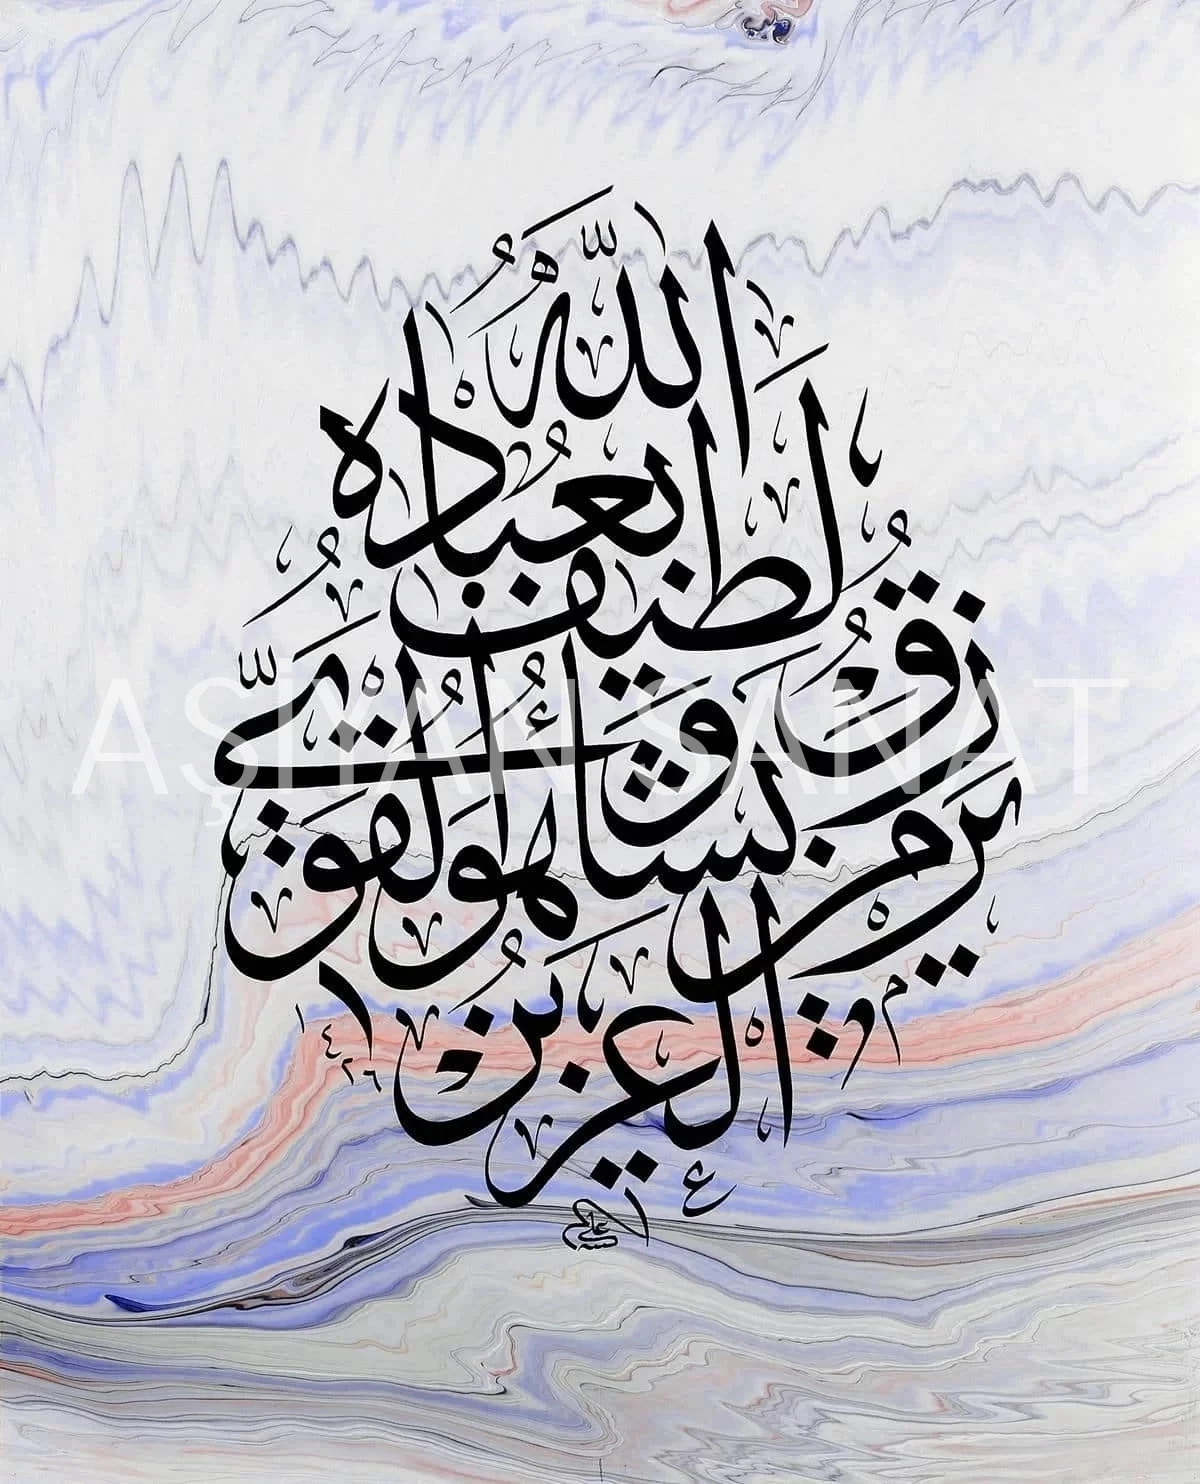 الله
لطيف بعباده
يرزق
من يشاء وهو القوي
العزيز
١٤٢٦
AŞİYAN SANAT